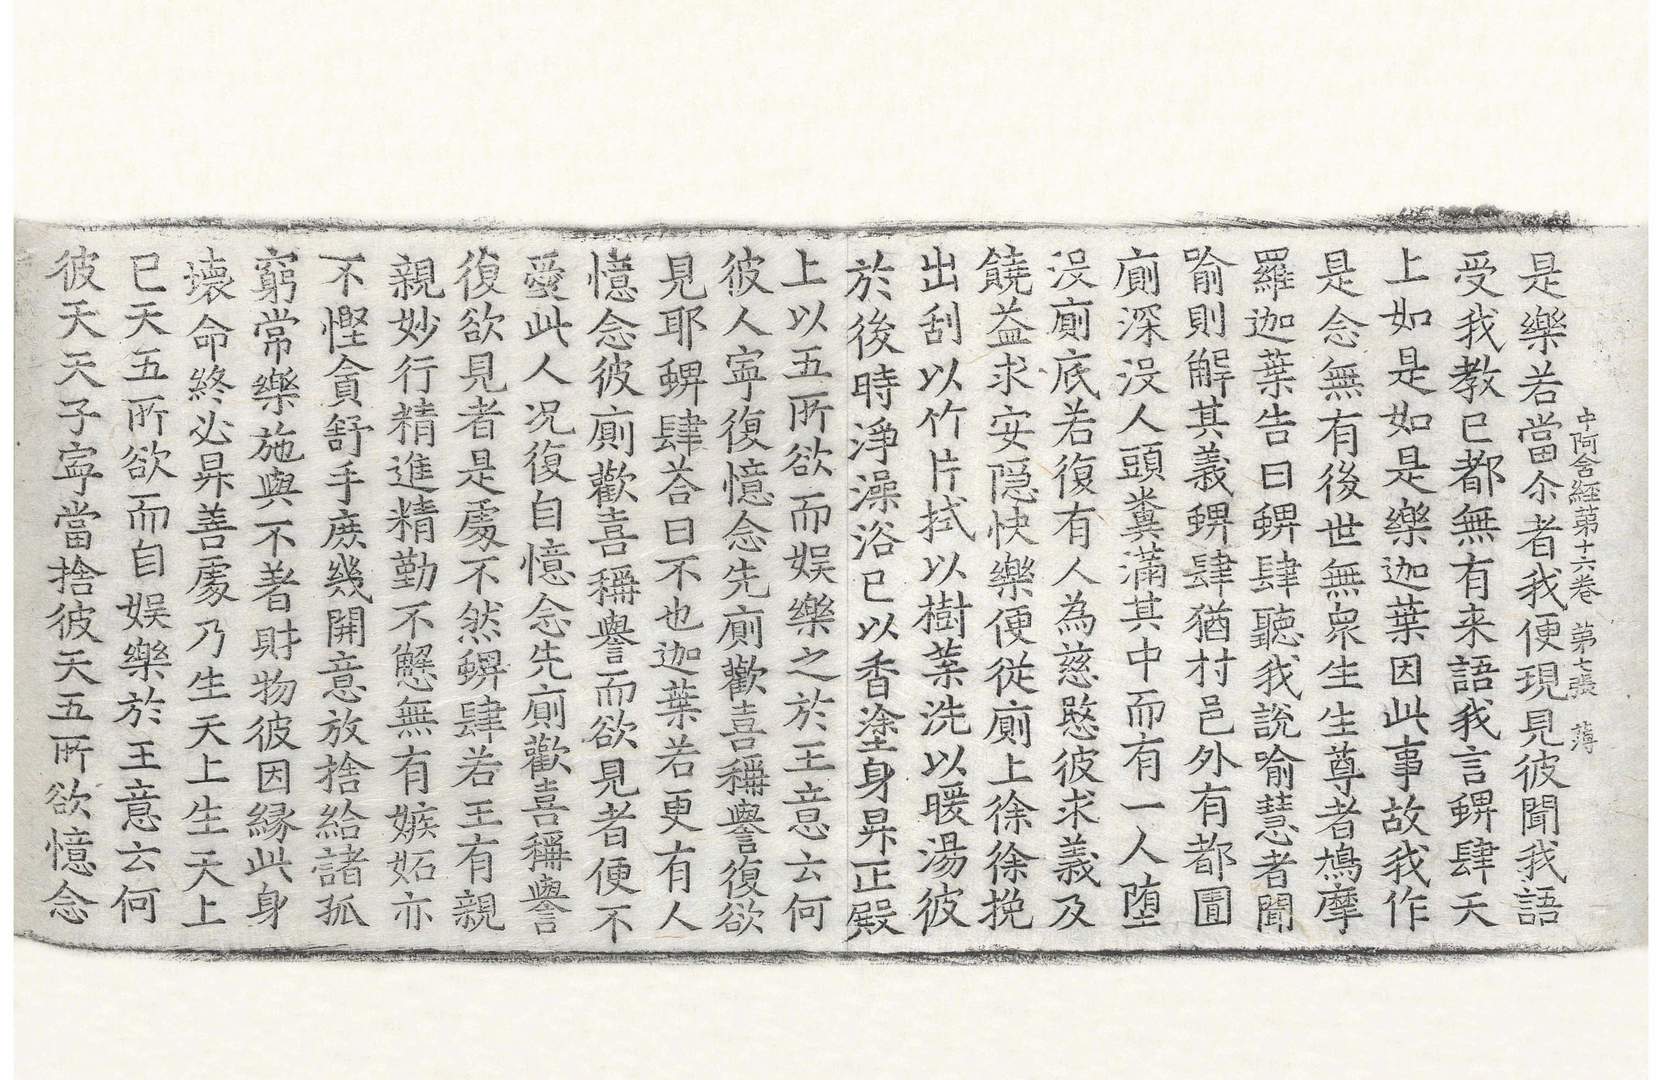 中阿含経苐十六卷 苐七張 薄
是樂若當尒者我便現見彼聞我語
受我教已都無有来語我言蜱肆天
上如是如是樂迦葉因此事故我作
是念無有後世無衆生生尊者鳩摩
羅迦葉告曰蜱肆聽我說喻慧者聞
喻則解其義蜱肆猶村邑外有都圊
廁深没人頭糞滿其中而有一人墮
没廁底若復有人為慈愍彼求義及
饒益求安隱快樂便從廁上徐徐挽
出刮以竹片拭以樹葉洗以暖湯彼
於後時淨澡浴已以香塗身昇正殿
上以五所欲而娱樂之於王意云何
彼人寧復憶念先廁歡喜稱譽復欲
見耶蜱肆荅曰不也迦葉若更有人
憶念彼廁歡喜稱譽而欲見者便不
愛此人况復自憶念先廁歡喜稱譽
復欲見者是處不然蜱肆若王有親
親妙行精進精勤不懈無有嫉妬亦
不慳貪舒手庶幾開意放捨給諸孤
窮常樂施與不著財物彼因緣此身
壞命終必昇善處乃生天上生天上
已天五所欲而自娱樂於王意云何
彼天天子寧當捨彼天五所欲憶念